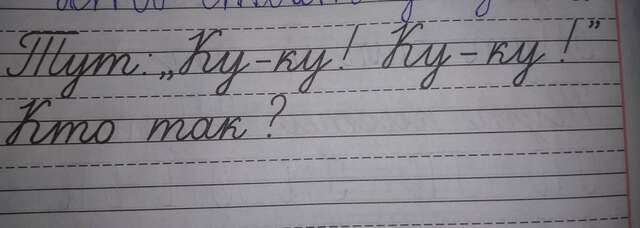 Тут: „Ку-ку! Ку-ку!”
Кто так?